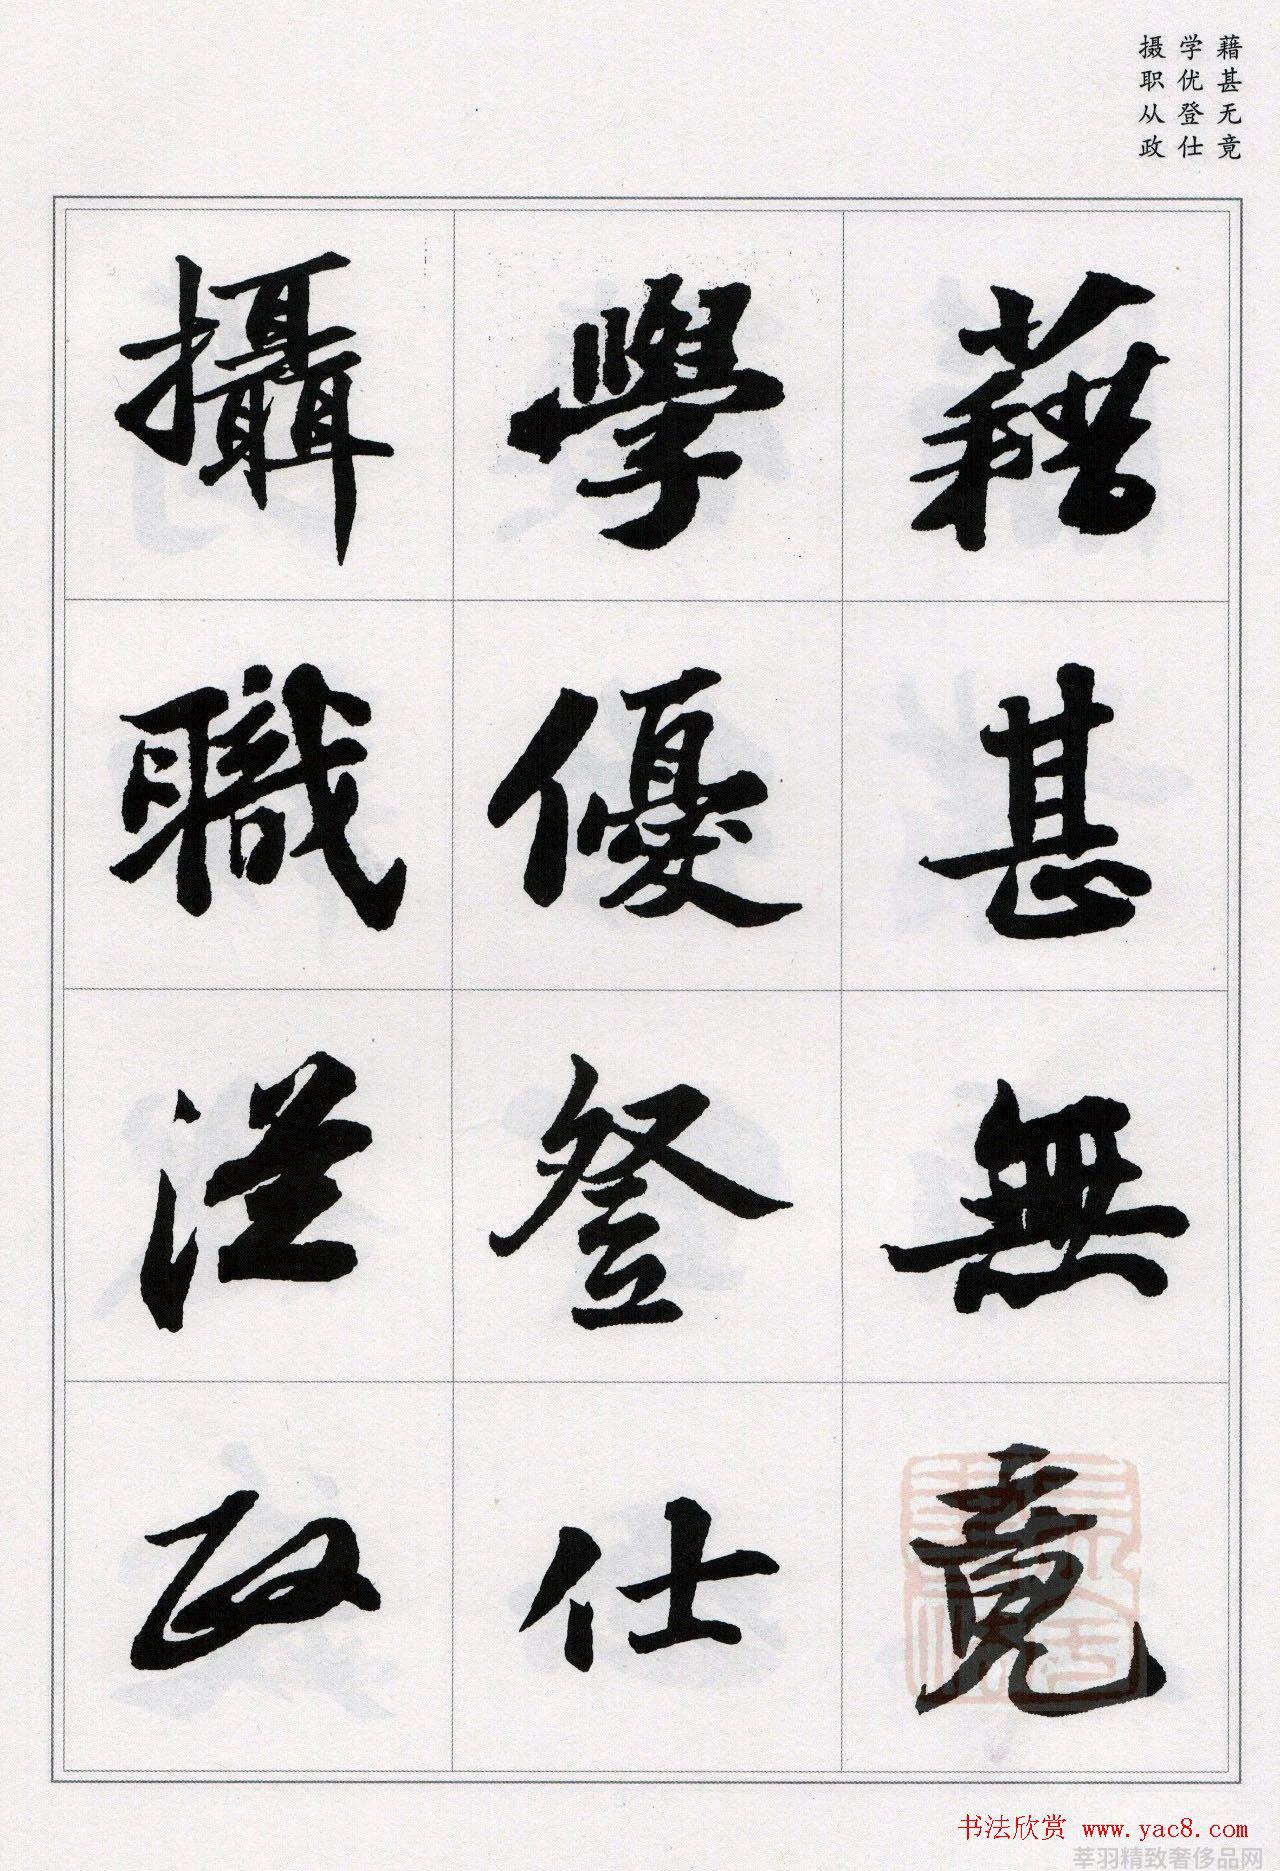 藉甚无竟
学优登仕
摄职从政
藉甚無竟
學優登仕
攝職從政
书法欣赏 www.yac8.com
莘羽精致奢侈品网